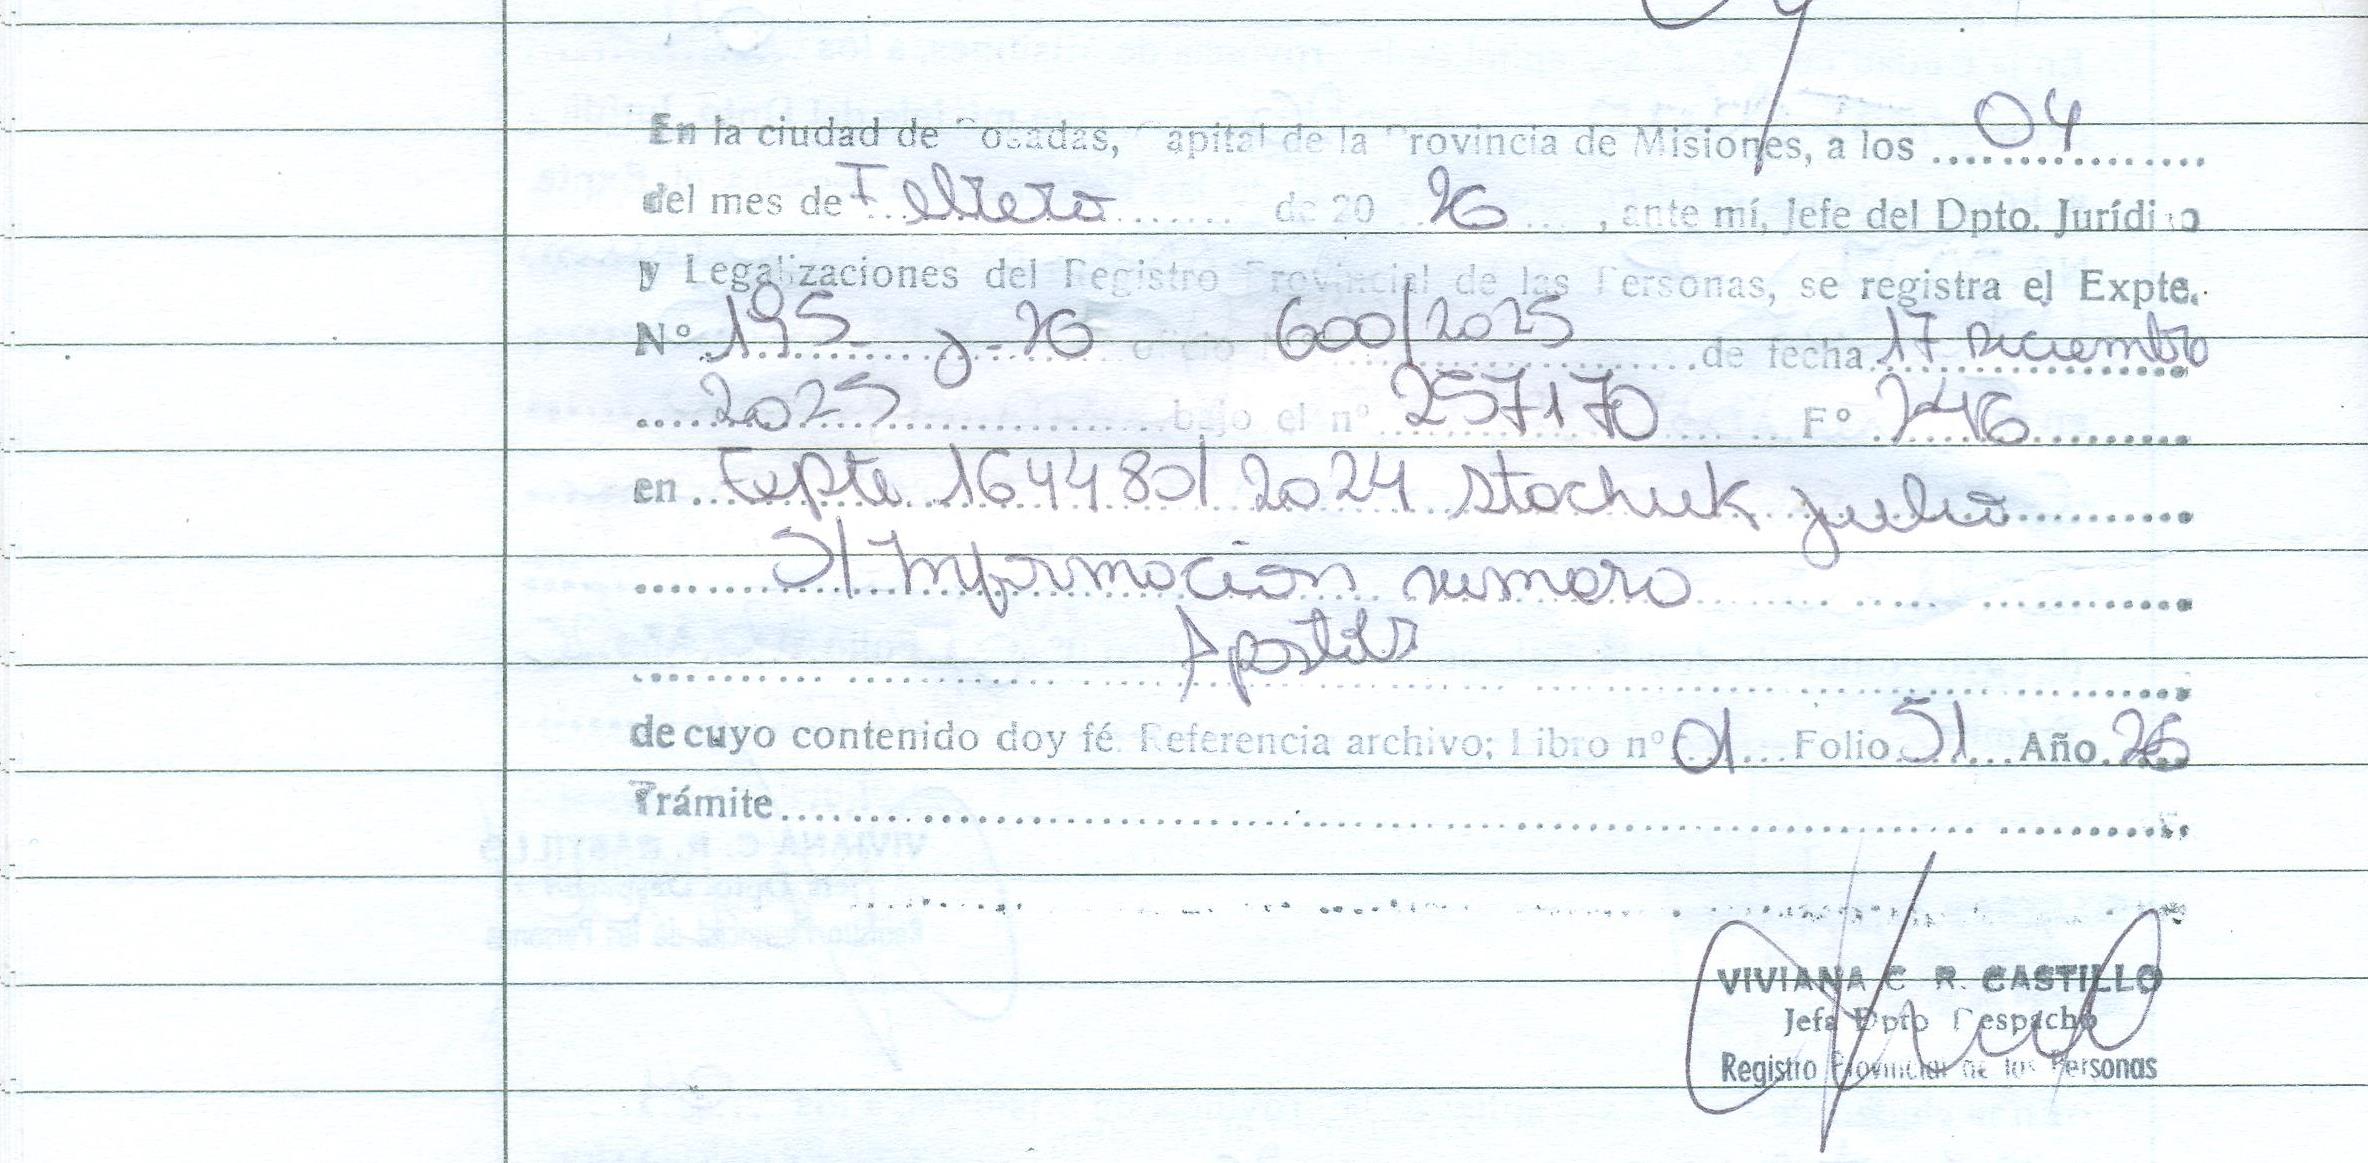 En la ciudad de Posadas, Capital de la Provincia de Misiones, a los 04
del mes de Febrero de 20 26, ante mí, Jefe del Dpto. Jurídico
y Legalizaciones del Registro Provincial de las Personas, se registra el Expte.
Nº 195 J-26 oficio Nº 600/2025 de fecha 17 Diciembre
2025 bajo el nº 257170 Fº 246
en Expte 164480/2024 Stachuk Julio
S/ Informacion sumaria
Apostoles
de cuyo contenido doy fé. Referencia archivo; Libro nº 01 Folio 51 Año 26
Trámite
VIVIANA C. R. CASTILLO
Jefa Dpto Despacho
Registro Provincial de las Personas